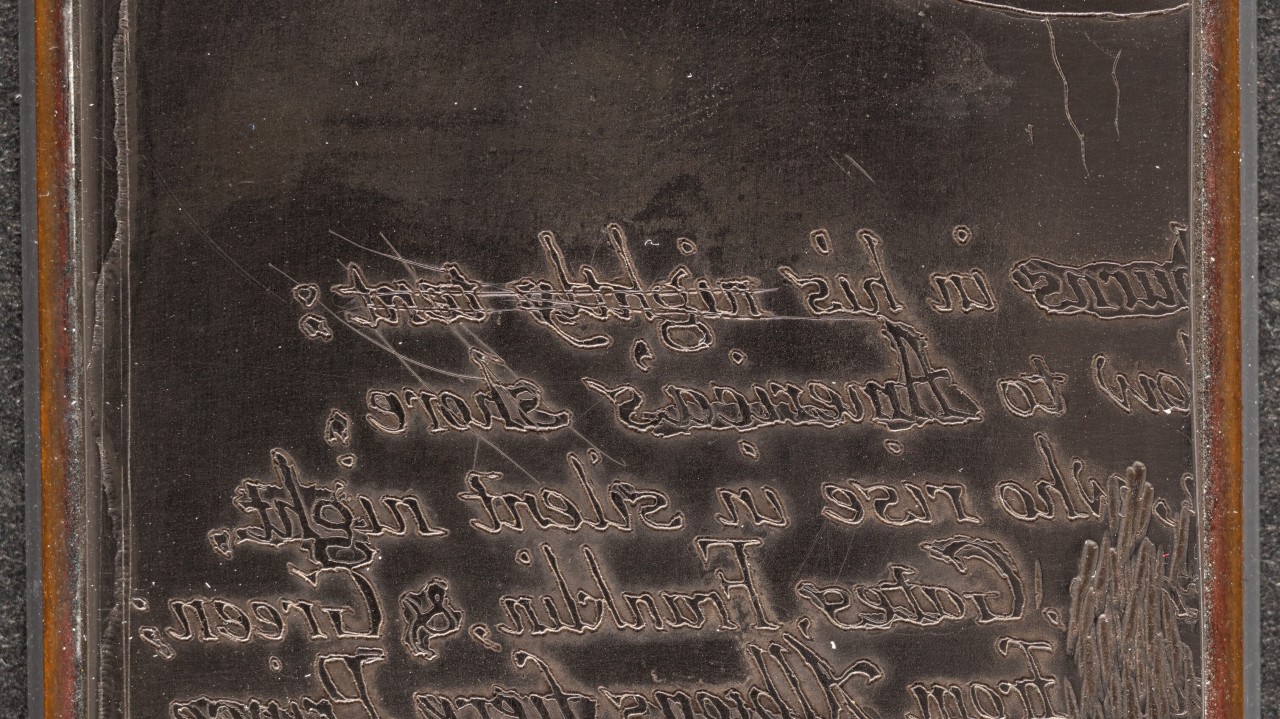 burns in his nightly tent;
ow to America's shore:
who rise in silent night,
Gates, Franklin, & Green;
from Albions fiery Prince